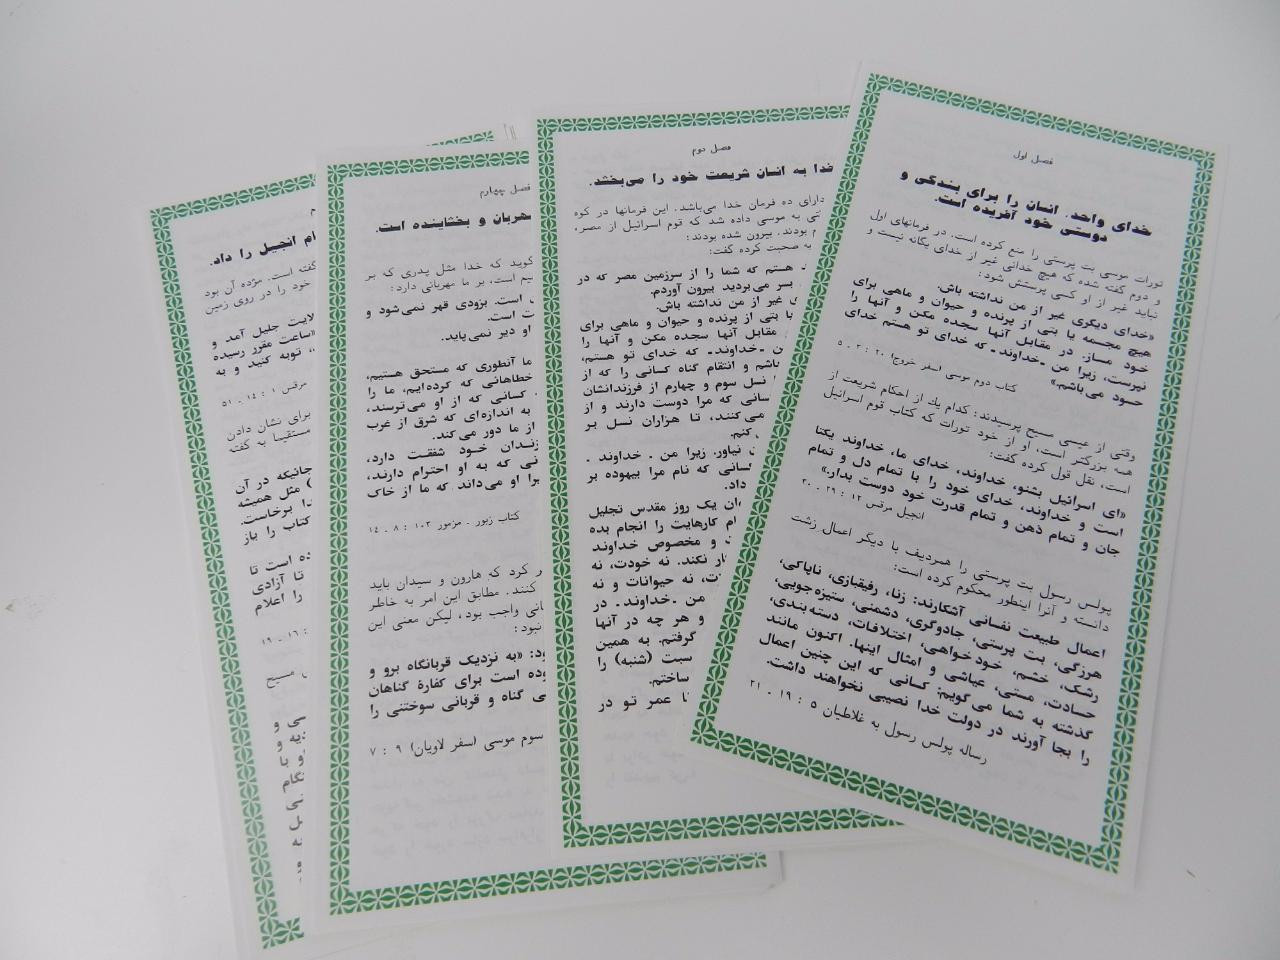 فصل اول
خدای واحد. انسان را برای بندگی و
دوستی خود آفریده است.
تورات موسی بت پرستی را منع کرده است. در فرمانهای اول
و دوم گفته شده که هیچ خدائی غیر از خدای یگانه نیست و
نباید غیر از او کسی پرستش شود:
«خدای دیگری غیر از من نداشته باش.
هیچ مجسمه یا بتی از پرنده و حیوان و ماهی برای
خود مساز. در مقابل آنها سجده مکن و آنها را
نپرست، زیرا من ـخداوندـ که خدای تو هستم خدای
حسود می‌باشم.»
کتاب دوم موسی (سفر خروج) ۲۰ : ۳ ـ ۵
وقتی از عیسی مسیح پرسیدند: کدام یك از احکام شریعت از
همه بزرگتر است، او از خود تورات که کتاب قوم اسرائیل
است، نقل قول کرده گفت:
«ای اسرائیل بشنو، خداوند، خدای ما، خداوند یکتا
است و خداوند، خدای خود را با تمام دل و تمام
جان و تمام ذهن و تمام قدرت خود دوست بدار.»
انجیل مرقس ۱۲ : ۲۹ ـ ۳۰
پولس رسول بت پرستی را همردیف با دیگر اعمال زشت
دانسته و آنرا اینطور محکوم کرده است:
اعمال طبیعت نفسانی آشکارند: زنا، رفیقبازی، ناپاکی،
هرزگی، بت پرستی، جادوگری، دشمنی، ستیزه‌جویی،
رشک، خشم، خودخواهی، اختلافات، دسته‌بندی،
حسادت، مستی، عیاشی و امثال اینها. اکنون مانند
گذشته به شما می‌گویم: کسانی که این چنین اعمال
را بجا آورند در دولت خدا نصیبی نخواهند داشت.
رساله پولس رسول به غلاطیان ۵ : ۱۹ ـ ۲۱
فصل دوم
خدا به انسان شریعت خود را می‌بخشد.
دارای ده فرمان خدا می‌باشد. این فرمانها در کوه
به موسی داده شد که قوم اسرائیل از مصر،
بودند. بیرون شده بودند:
صحبت کرده گفت:
هستم که شما را از سرزمین مصر که در
بسر می‌بردید بیرون آوردم.
غیر از من نداشته باش.
یا بتی از پرنده و حیوان و ماهی برای
مقابل آنها سجده مکن و آنها را
من ـخداوندـ که خدای تو هستم،
و انتقام گناه کسانی را که از
نسل سوم و چهارم از فرزندانشان
که مرا دوست دارند و از
می‌کنند، تا هزاران نسل بر
نیاور. زیرا من ـ خداوند ـ
کسانی که نام مرا بیهوده بر
داد.
یک روز مقدس تجلیل
کارهایت را انجام بده
و مخصوص خداوند
نکند. نه خودت، نه
نه حیوانات و نه
من ـخداوندـ در
و هر چه در آنها
گرفتم. به همین
سبت (شنبه) را
ساختم.
عمر تو در
فصل چهارم
و بخشاینده است.
که خدا مثل پدری که بر
است، بر ما مهربانی دارد:
است. بزودی قهر نمی‌شود و
است.
او دیر نمی‌پاید.
آنطوری که مستحق هستیم،
خطاهائی که کرده‌ایم، ما را
کسانی که از او می‌ترسند،
به اندازه‌ای که شرق از غرب
از ما دور می‌کند.
خود شفقت دارد،
که به او احترام دارند،
او می‌داند که ما از خاک
کتاب زبور ـ مزمور ۱۰۳ : ۸ ـ ۱۴
کرد که هارون و سیدان باید
کنند. مطابق این امر به خاطر
واجب بود، لیکن معنی این
نبود:
«به نزدیک قربانگاه برو و
است برای کفارهٔ گناهان
گناه و قربانی سوختنی را
سوم موسی (سفر لاویان) ۹ : ۷
انجیل را داد.
گفته است. مژده آن بود
خود را در روی زمین
جلیل آمد و
«ساعت مقرر رسیده
توبه کنید و به
مرقس ۱ : ۱۴ ـ ۵۱
برای نشان دادن
مستقیما به گفته
جائیکه در آن
مثل همیشه
برخاست.
کتاب را باز
است تا
تا آزادی
را اعلام
۱۶ ـ ۱۹
مسیح